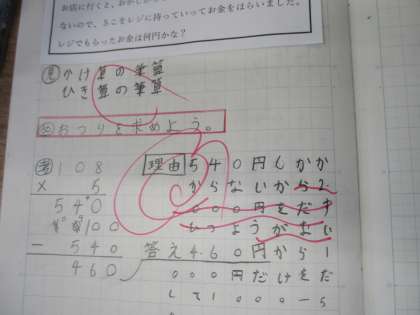 お店に行くと、おかしが
ないので、そこをレジに持っていってお金をはらいました。
レジでもらったお金は何円かな？
見 かけ算の筆算
ひき算の筆算
め おつりを求めよう。
考 108
× 5
540
100
- 540
460
理由 540円しかか
からないから2
000円をだす
ひつようがない
答え460円から1
000円だけをだ
して1000-5